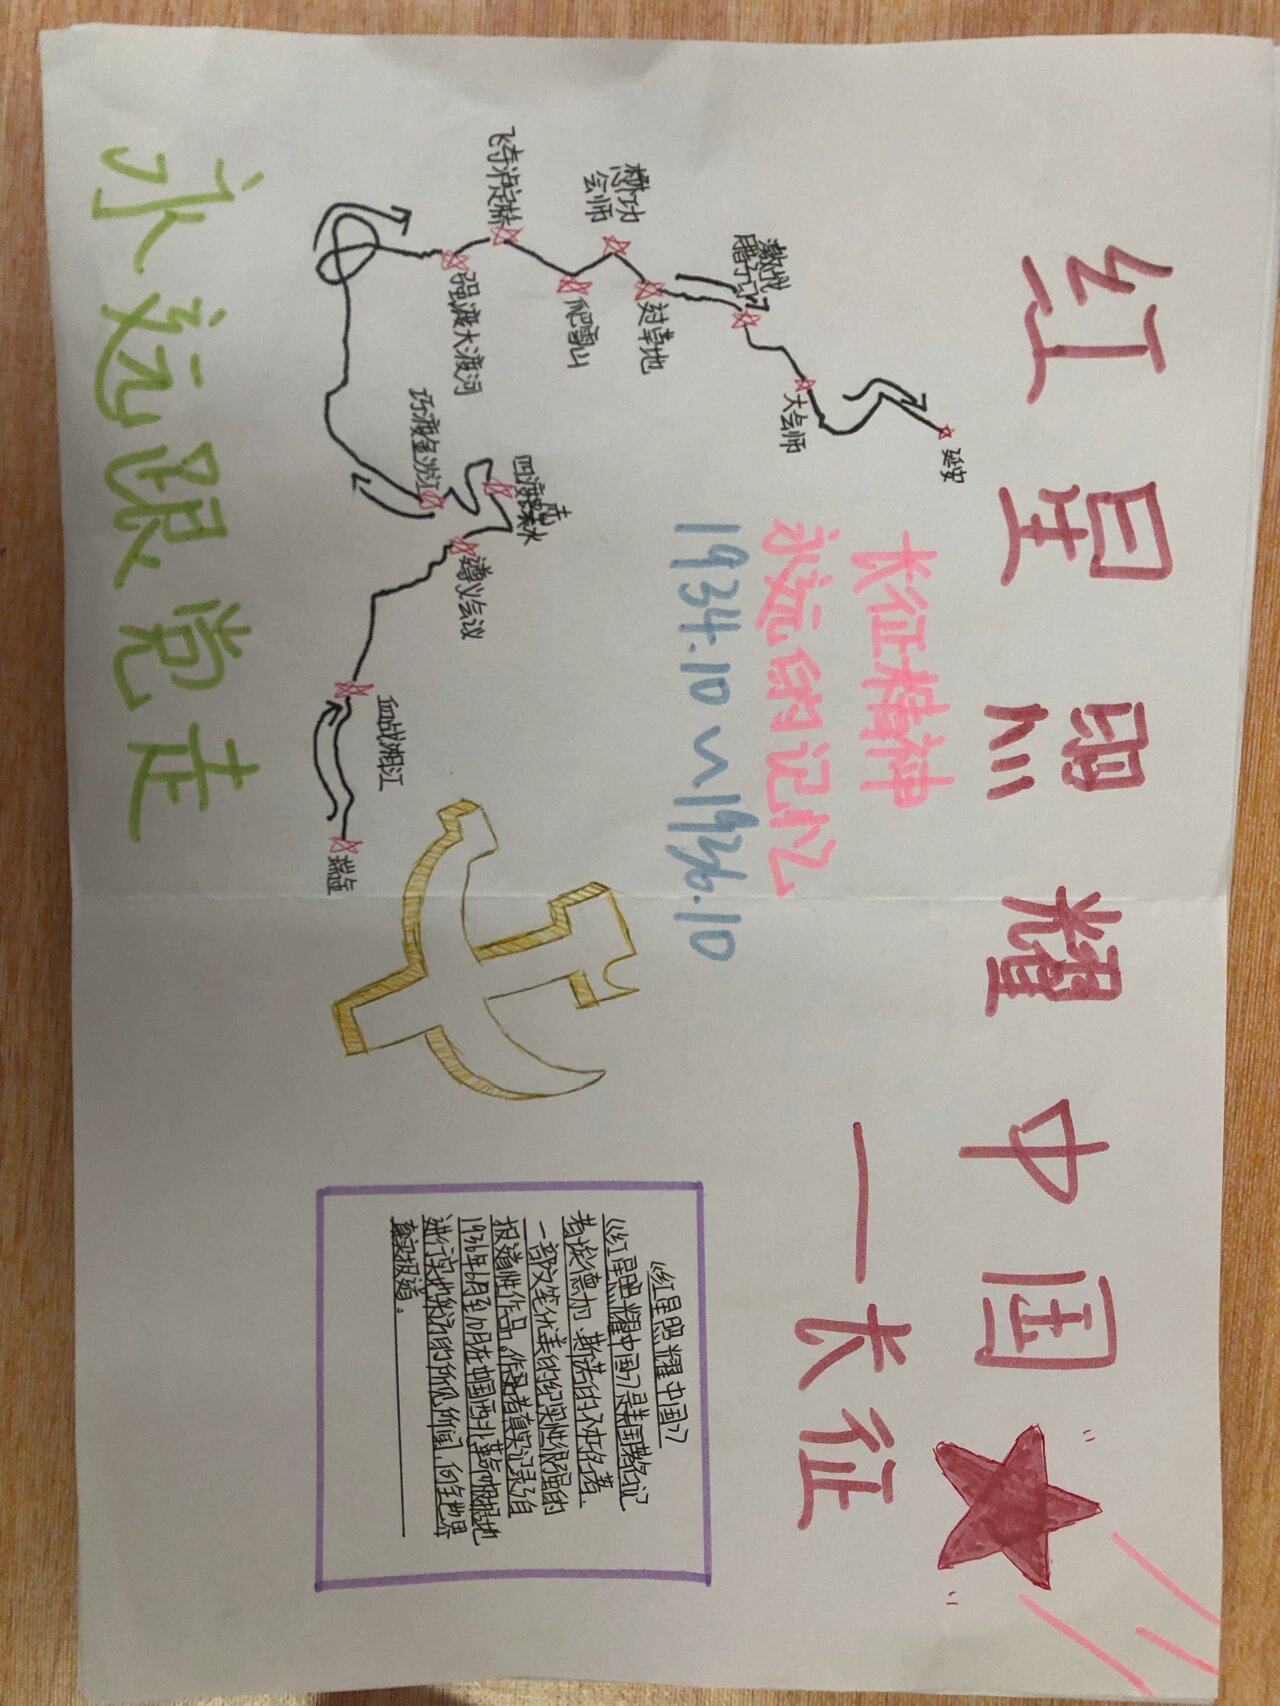 红星照耀中国
—长征
长征精神
永远的记忆
1934.10~1936.10
延安
大会师
激战
腊子口
过草地
懋功
会师
爬雪山
飞夺泸定桥
强渡大渡河
巧渡金沙江
四渡赤水
遵义会议
血战湘江
瑞金
《红星照耀中国》
《红星照耀中国》是美国著名记
者埃德加.斯诺的不朽名著.
一部文笔优美的纪实性很强的
报道性作品。作者真实记录了自
1936年6月至10月在中国西北革命根据地
进行实地采访的所见所闻,向全世界
真实报道。
永远跟党走